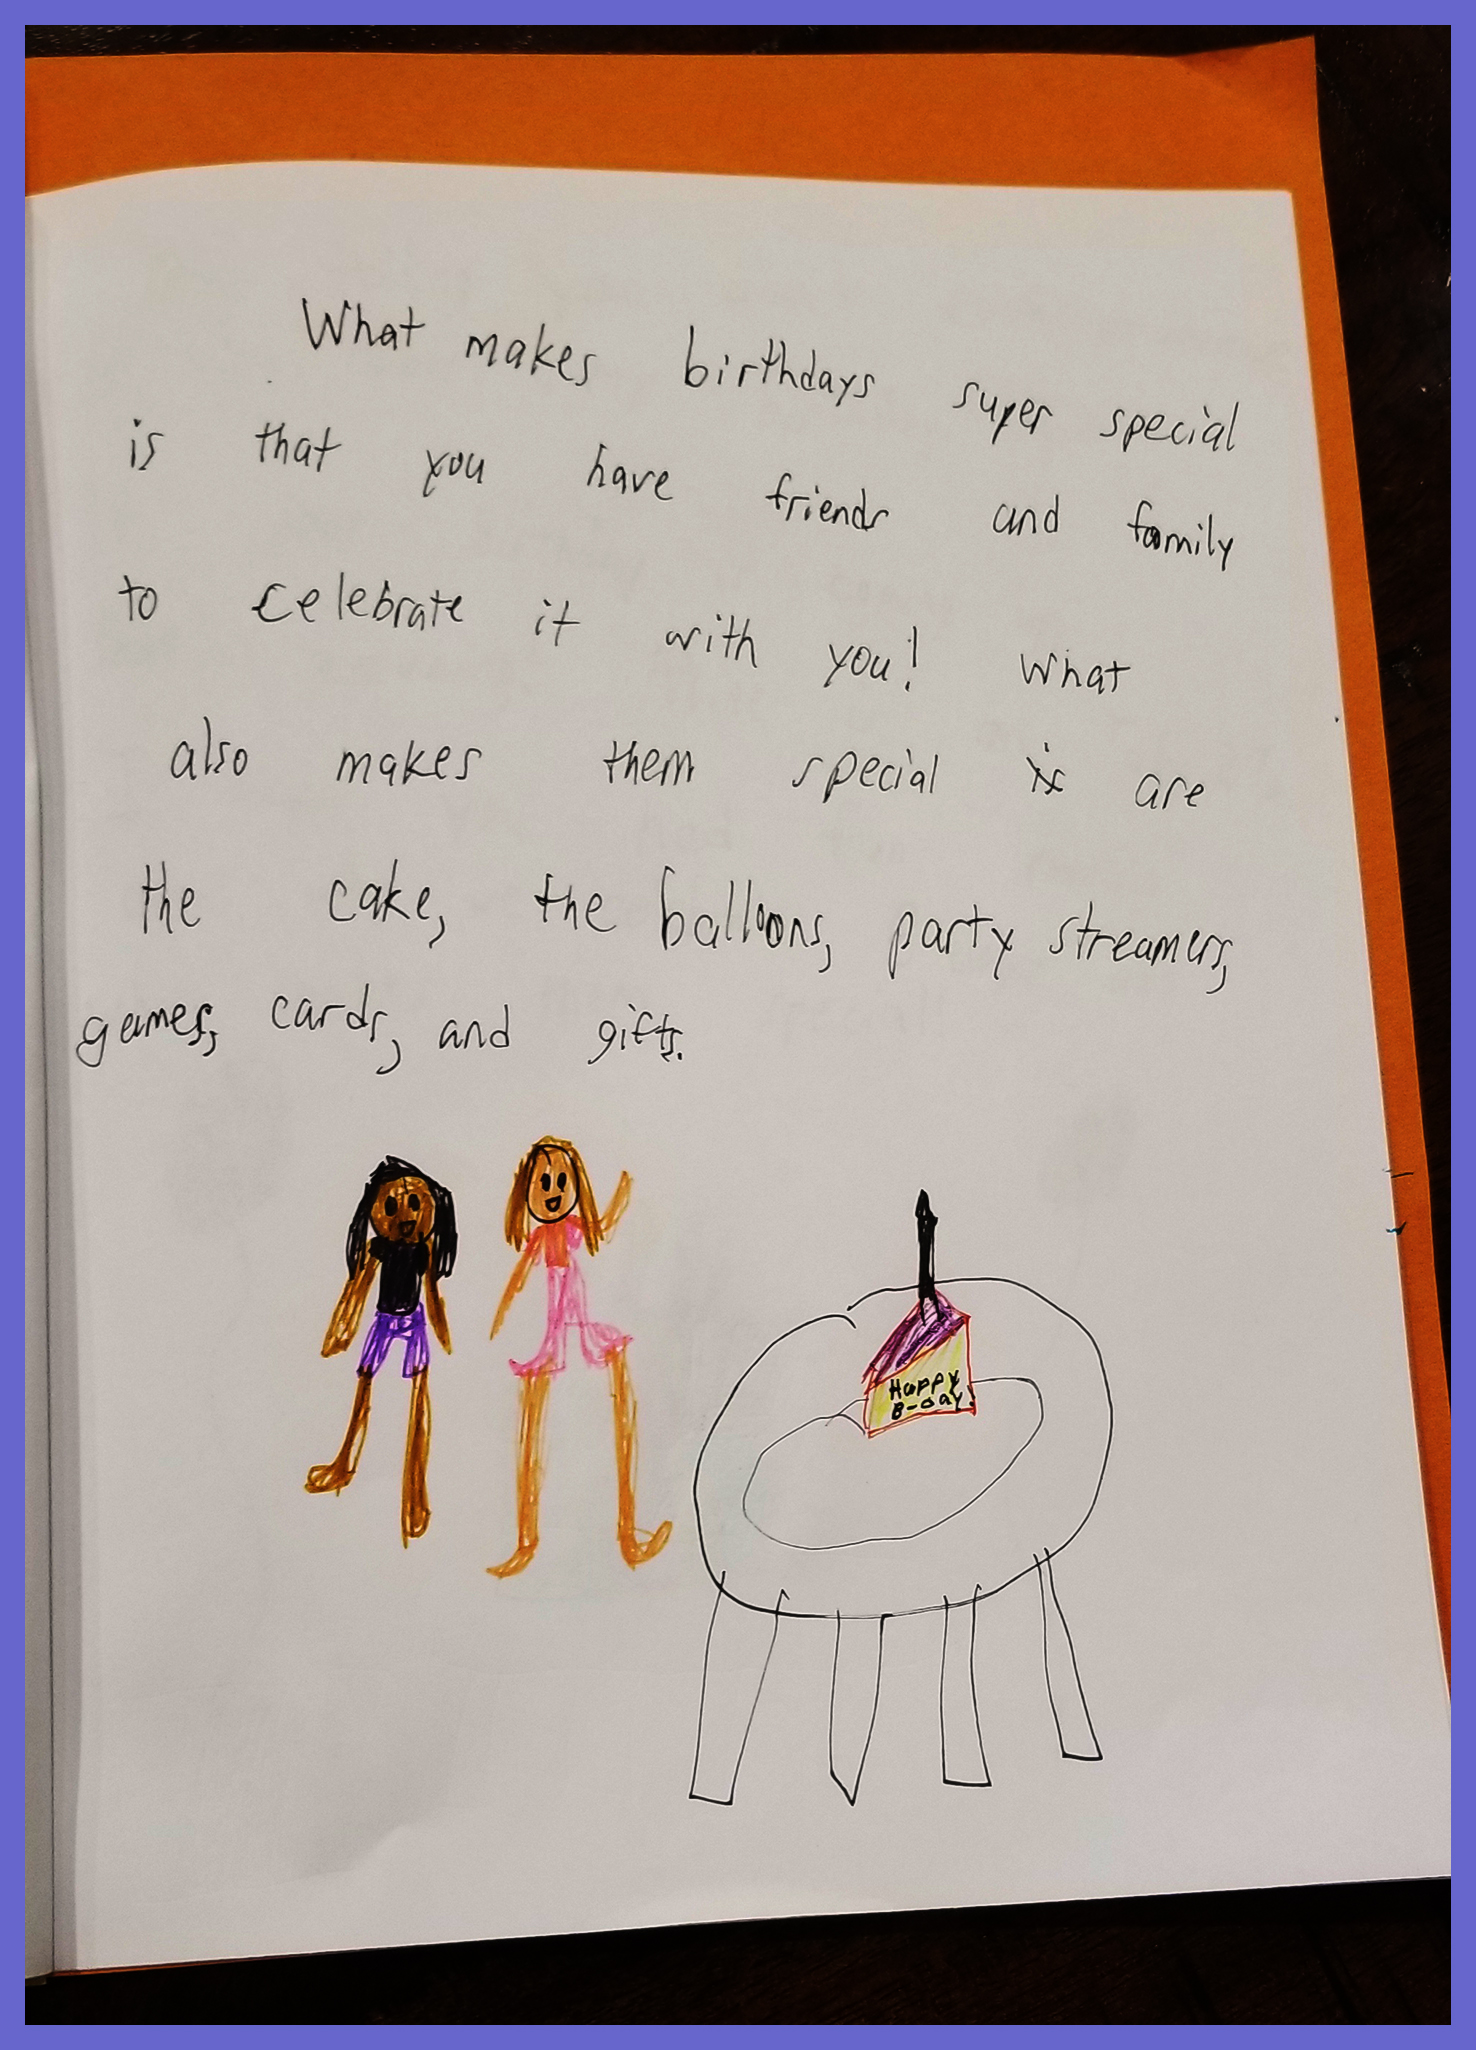 What makes birthdays super special
is that you have friends and family
to celebrate it with you! What
also makes them special is are
the cake, the balloons, party streamers,
games, cards, and gifts.
Happy
B-day!